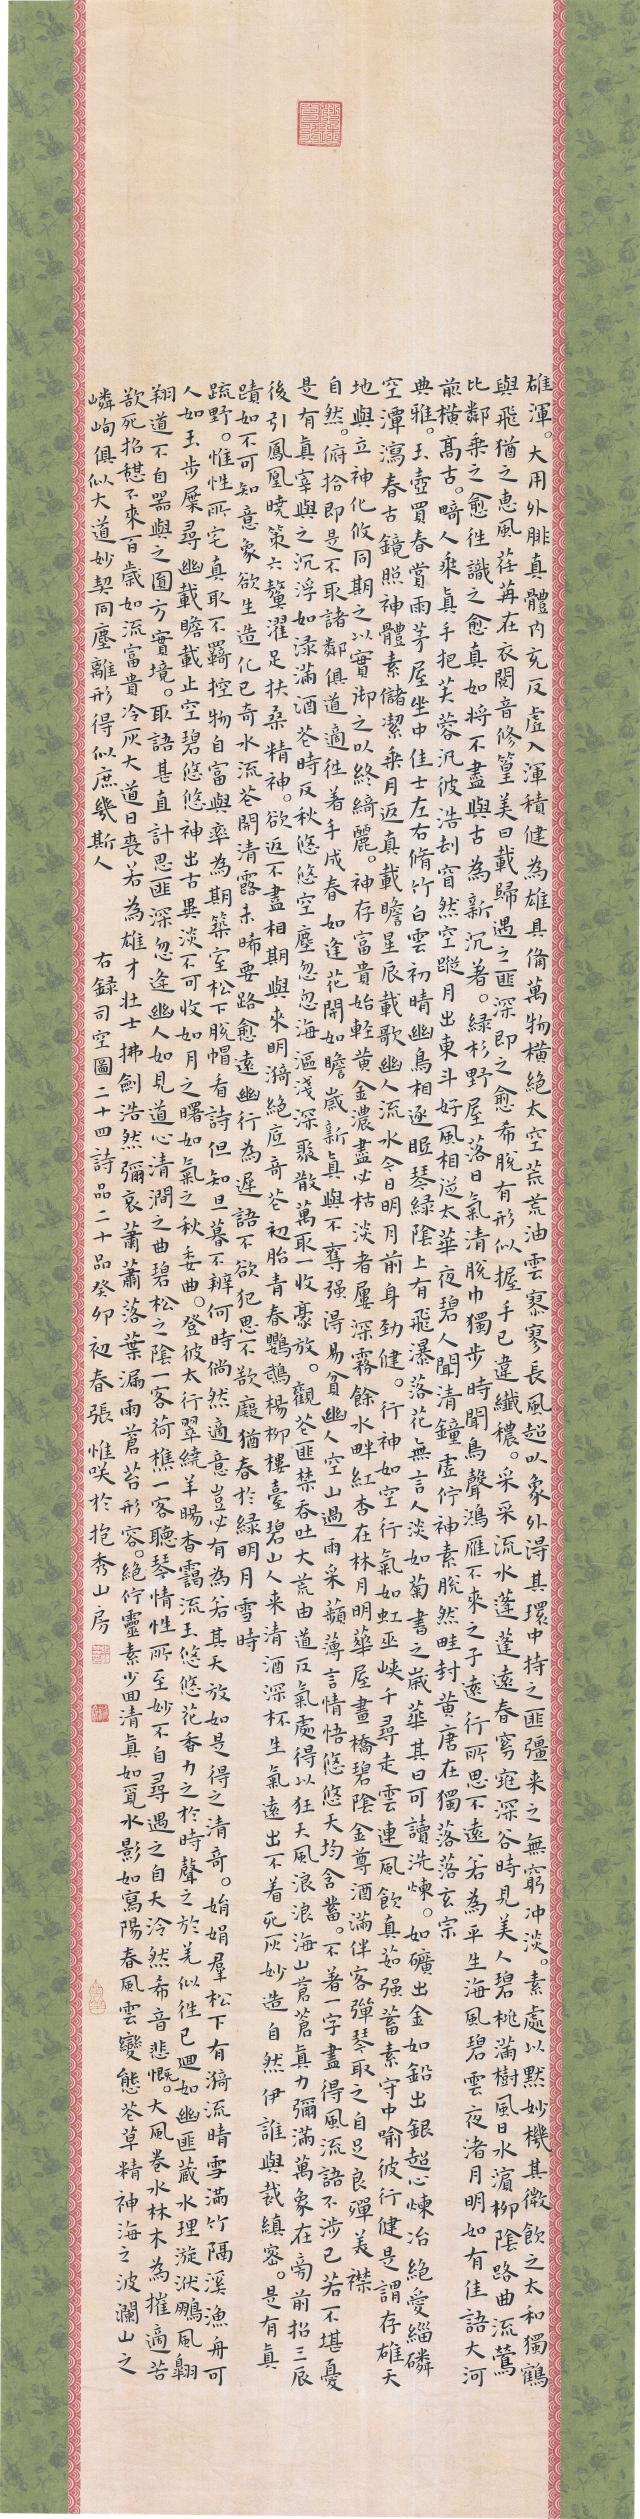 雄渾。大用外腓真體內充反虛入渾積健為雄具備萬物橫絕太空荒荒油雲寥寥長風超以象外得其環中持之匪彊来之無窮冲淡。素處以默妙機其微飲之太和獨鶴
與飛猶之惠風荏苒在衣閱音修篁美曰載歸遇之匪深即之愈希脫有形似握手已違纖穠。采采流水蓬蓬遠春窈窕深谷時見美人碧桃滿樹風日水濱柳陰路曲流鶯
比鄰乘之愈往識之愈真如將不盡與古為新沉著。綠杉野屋落日氣清脫巾獨步時聞鳥聲鴻雁不來之子遠行所思不遠若為平生海風碧雲夜渚月明如有佳語大河
前橫高古。畸人乘真手把芙蓉汎彼浩刦窅然空蹤月出東斗好風相從太華夜碧人聞清鐘虛佇神素脫然畦封黄唐在獨落落玄宗
典雅。玉壺買春賞雨茅屋坐中佳士左右脩竹白雲初晴幽鳥相逐眠琴綠陰上有飛瀑落花無言人淡如菊書之歲華其曰可讀洗煉。如礦出金如鉛出銀超心煉冶絕愛緇磷
空潭瀉春古鏡照神體素儲潔乘月返真載瞻星辰載歌幽人流水今日明月前身勁健。行神如空行氣如虹巫峽千尋走雲連風飲真茹强蓄素守中喻彼行健是謂存雄天
地與立神化攸同期之以實御之以終綺麗。神存富貴始輕黄金濃盡必枯淡者屢深霧餘水畔紅杏在林月明華屋畫橋碧陰金尊酒滿伴客彈琴取之自足良殫美襟
自然。俯拾即是不取諸鄰俱道適往着手成春如逢花開如瞻歲新真與不奪强得易貧幽人空山過雨采蘋薄言情悟悠悠天均含蓄。不著一字盡得風流語不涉己若不堪憂
是有真宰與之沉浮如淥滿酒花時反秋悠悠空塵忽忽海漚淺深聚散萬取一收豪放。觀花匪禁吞吐大荒由道反氣處得以狂天風浪浪海山蒼蒼真力彌滿萬象在旁前招三辰
後引鳳凰曉策六鰲濯足扶桑精神。欲返不盡相期與來明漪絕底奇花初胎青春鸚鵡楊柳樓臺碧山人来清酒深杯生氣遠出不着死灰妙造自然伊誰與裁縝密。是有真
蹟如不可知意象欲生造化已奇水流花開清露未晞要路愈遠幽行為遲語不欲犯思不欲癡猶春於綠明月雪時
疏野。惟性所宅真取不羈控物自富與率為期築室松下脫帽看詩但知旦暮不辨何時倘然適意豈必有為若其天放如是得之清奇。娟娟羣松下有漪流晴雪滿竹隔溪漁舟可
人如玉步屧尋幽載瞻載止空碧悠悠神出古異淡不可收如月之曙如氣之秋委曲。登彼太行翠繞羊腸杳靄流玉悠悠花香力之於時聲之於羌似往已迴如幽匪藏水理漩洑鵬風翱
翔道不自器與之圓方實境。取語甚直計思匪深忽逢幽人如見道心清澗之曲碧松之陰一客荷樵一客聽琴情性所至妙不自尋遇之自天泠然希音悲慨。大風卷水林木為摧適苦
欲死招憩不來百歲如流富貴冷灰大道日喪若為雄才壯士拂劍浩然彌哀蕭蕭落葉漏雨蒼苔形容。絕佇靈素少回清真如覓水影如寫陽春風雲變態花草精神海之波瀾山之
嶙峋俱似大道妙契同塵離形得似庶幾斯人 右錄司空圖二十四詩品二十品癸卯初春張惟咲於抱秀山房